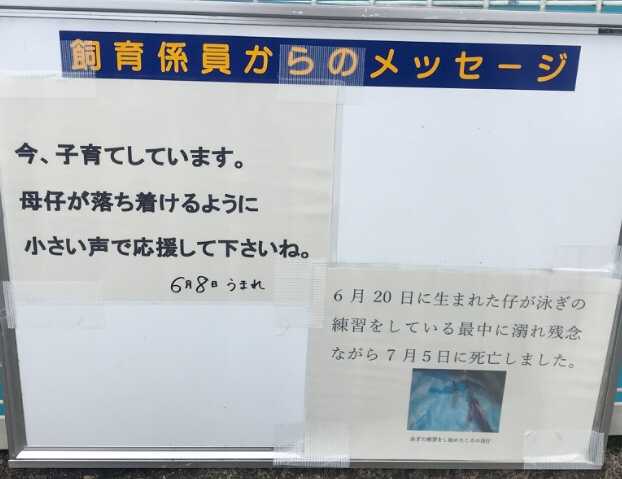 飼育係員からのメッセージ
今、子育てしています。
母仔が落ち着けるように
小さい声で応援して下さいね。
6月8日 うまれ
6月20日に生まれた仔が泳ぎの
練習をしている最中に溺れ残念
ながら7月5日に死亡しました。